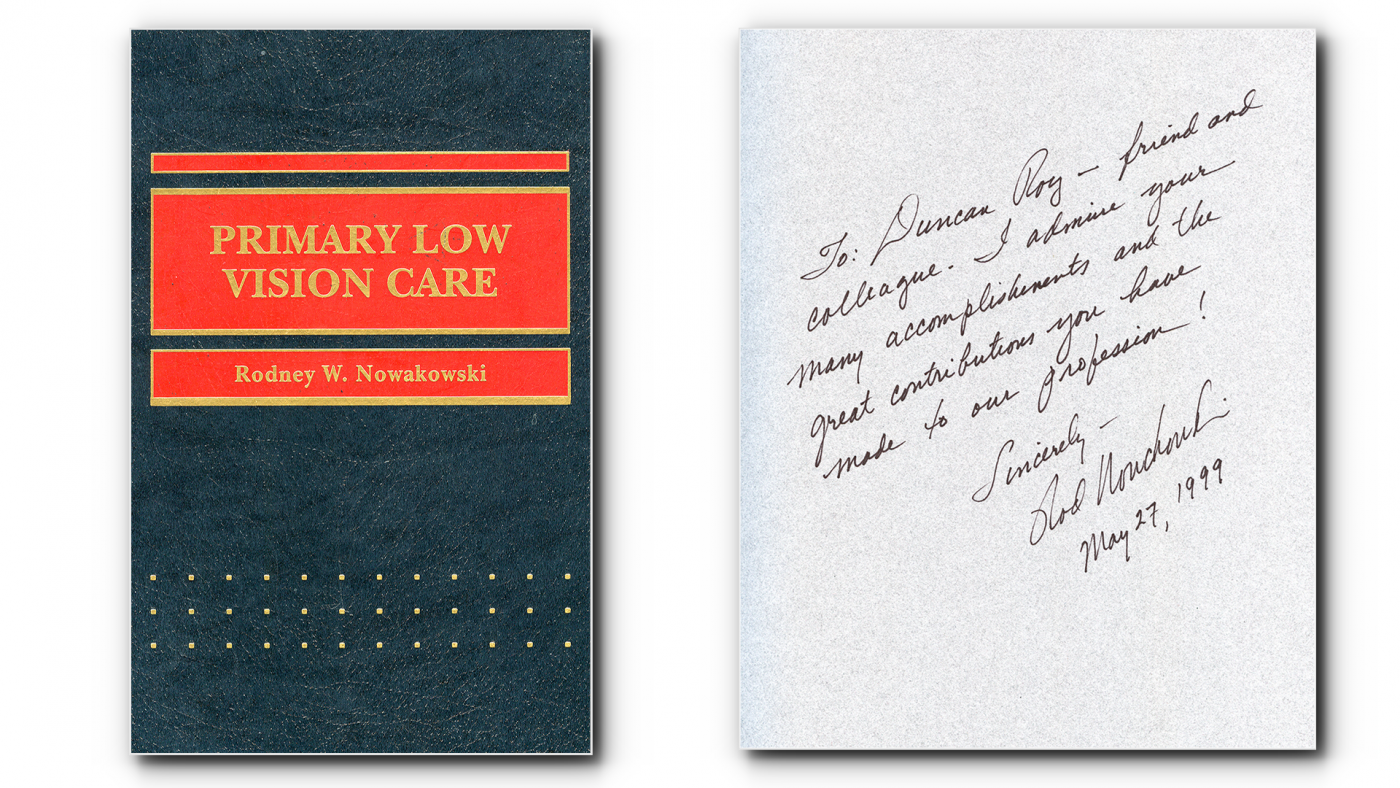 PRIMARY LOW
VISION CARE
Rodney W. Nowakowski
To: Duncan Roy – friend and
colleague. I admire your
many accomplishments and the
great contributions you have
made to our profession!
Sincerely –
Rod Nowakowski
May 27, 1999